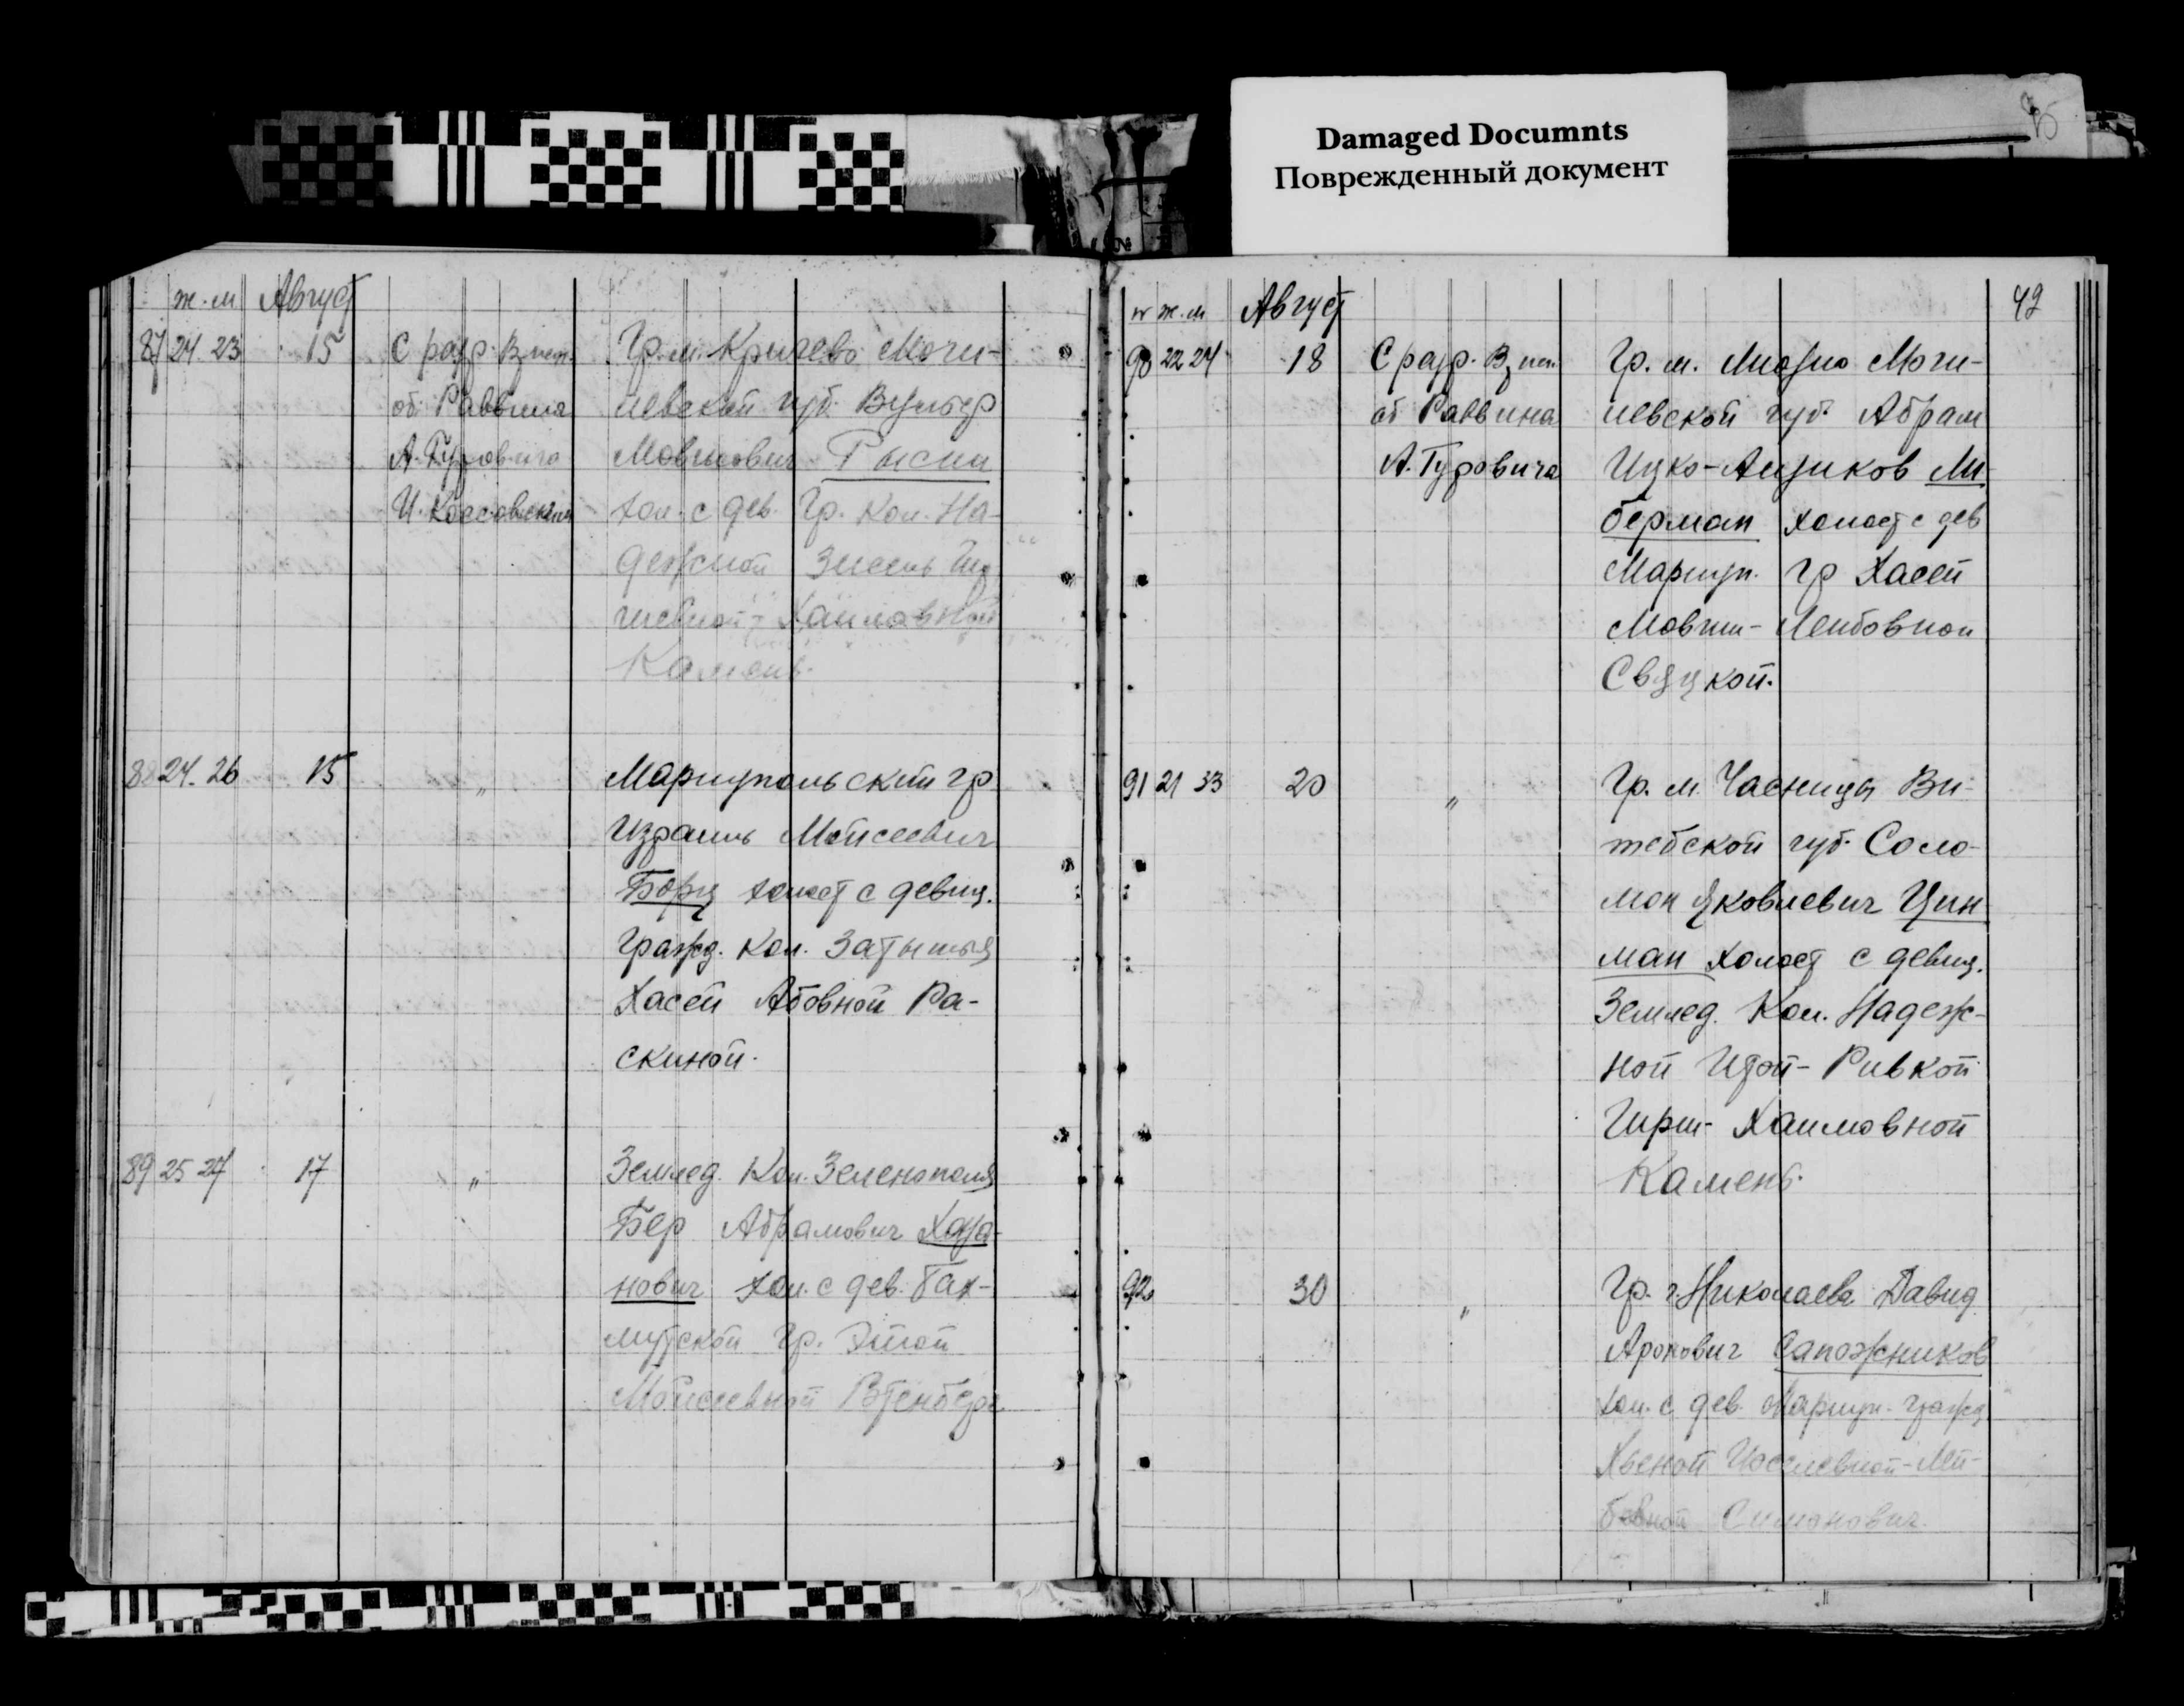 Damaged Documnts
Поврежденный документ
ж. м Август
87 24 23 15 С разр.
об. Раввина
И. Коссовский
Гр. м. Кричево Моги-
левской губ. Вульф
Мовшович Рысин
хол. с дев. Гр. Кол. На-
дежной
Хаимовной
Камень.
88 24. 26 15 "
Мариупольский гр
Израиль Мойсеевич
Борц холост с девиц.
Гражд. Кол. Затышья
Хасей Абовной Ра-
скиной.
89 25 27 17 "
Землед. Кол. Зеленополя
Бер Абрамович Хаза-
нович хол. с дев. Бах-
мутской гр. Этой
Мойсеевной
№ ж. м Август 42
90 22 24 18 С разр.
об Раввина
А. Гуровича
Гр. м. Лиозно Моги-
левской губ. Абрам
Ицко-Айзиков Ли-
берман холост с дев
Мариуп. гр Хасей
Мовши-Лейбовной
Святской.
91 21 33 20 "
Гр. м. Часницы Ви-
тебской губ. Соло-
мон Яковлевич Цин
ман холост с девиц.
Землед. Кол. Надеж-
ной Идой-Ривкой
Гирш-Хаимовной
Камень.
92 30 "
Гр. г. Николаева Давид
Аронович Сапожников
хол. с дев. Мариуп. гражд.
Хьеной Иоселевной-Лей-
бовной Симонович.